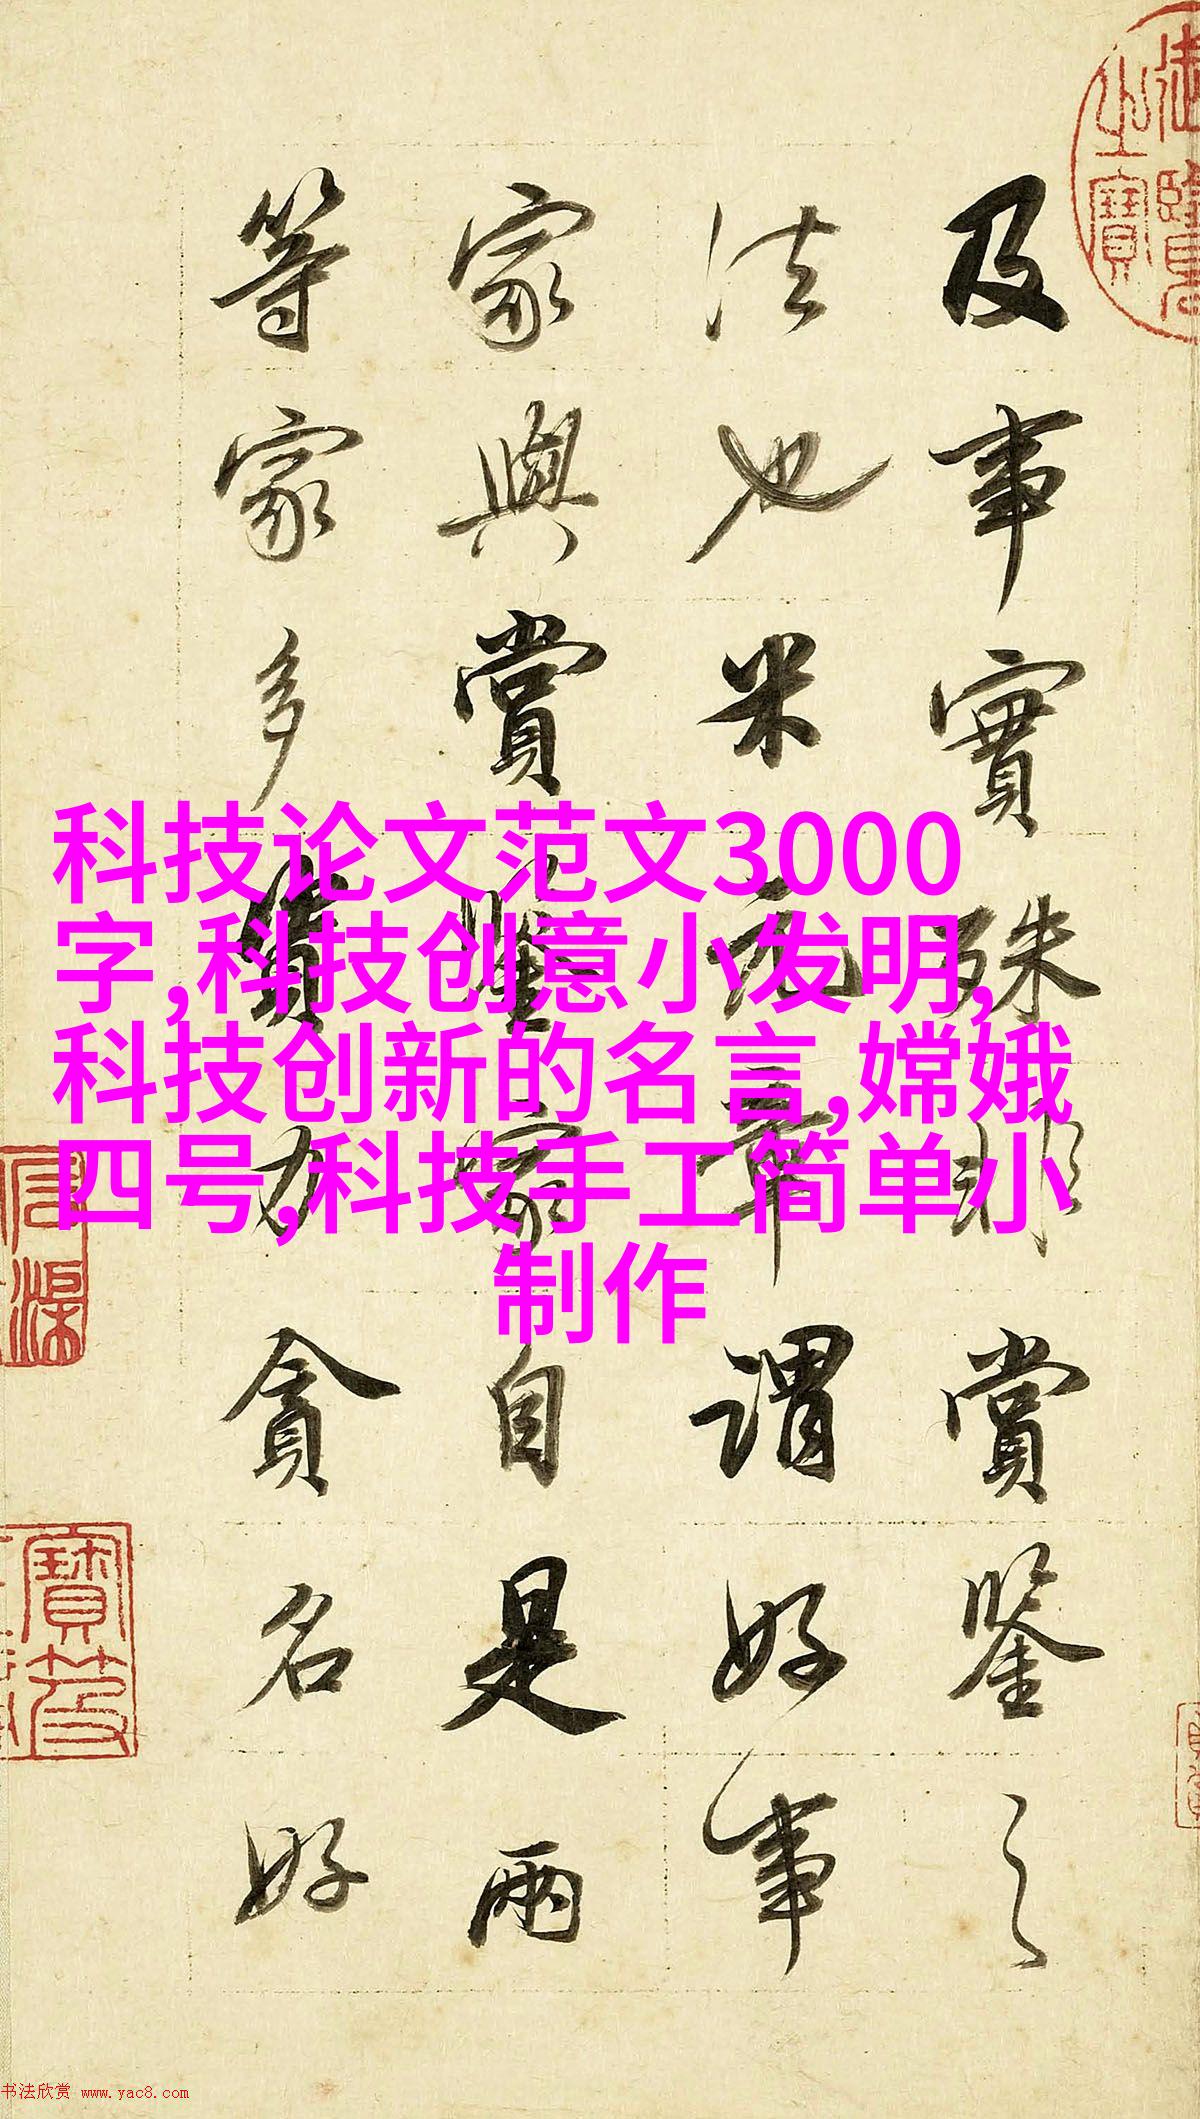 及事實殊非賞鑒之
法也米元章謂好事
家與賞鑒家自是兩
等家多資力貪名好
科技论文范文3000
字,科技创意小发明,
科技创新的名言,嫦娥
四号,科技手工简单小
制作
御覽之寶
书法欣赏 www.yac8.com